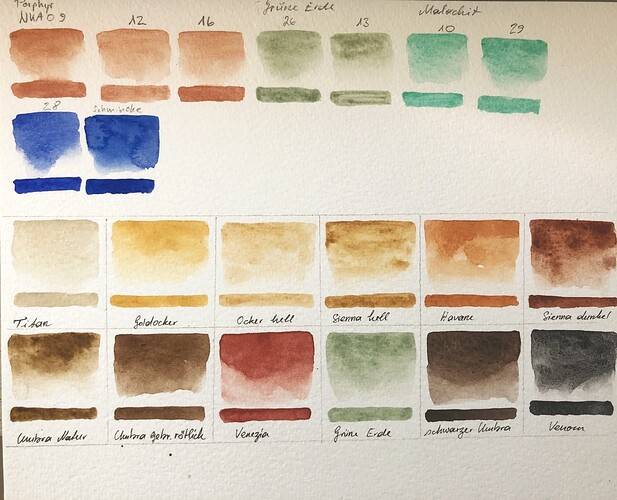 Porphyr Grüne Erde Malachit
NHA09 12 16 26 13 10 29
28 Schmincke
Titan Goldocker Ocker hell Sienna hell Havanna Sienna dunkel
Umbra Natur Umbra gebr. rötlich Venezia Grüne Erde schwarzer Umbra